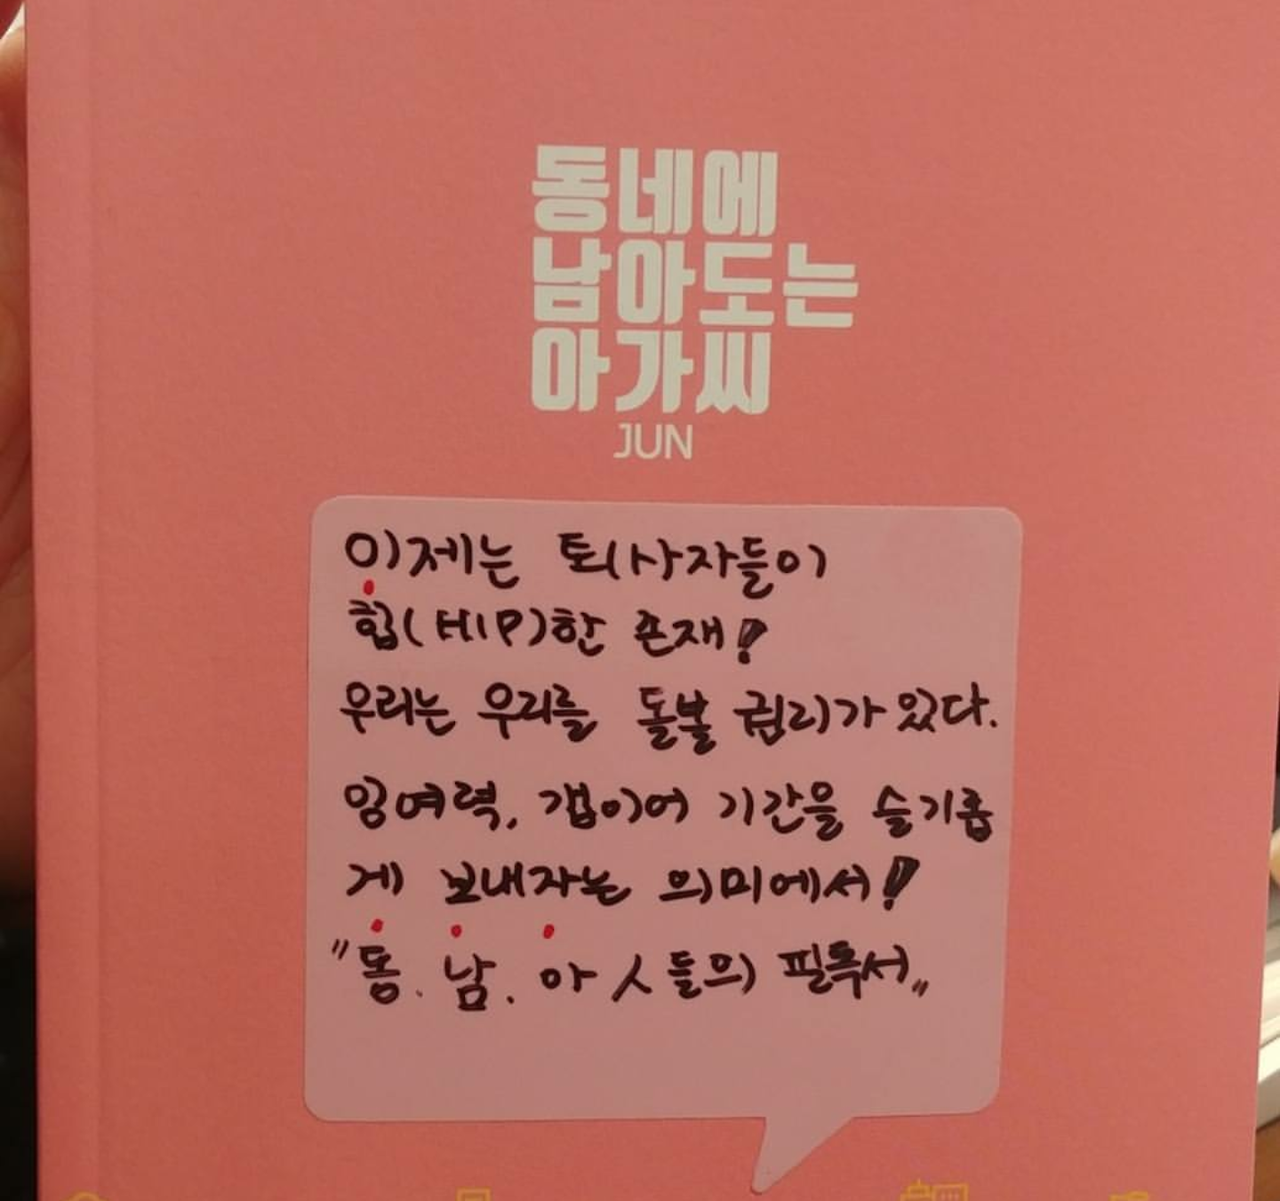 동네에
남아도는
아가씨
JUN
이제는 퇴사자들이
힙(HIP)한 존재!
우리는 우리를 돌볼 권리가 있다.
잉여력, 갭이어 기간을 슬기롭
게 보내자는 의미에서!
"동.남.아 人들의 필독서"